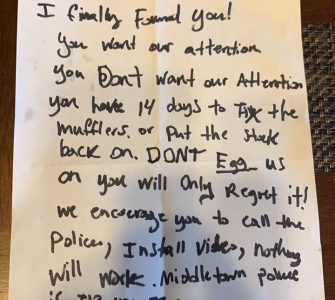 I finally Found You!
You want our attention
you Dont want our Attention
you have 14 days to Fix the
mufflers. or Put the Stock
back on. DONT Egg us
on you will Only Regret it!
we encourage you to call the
Police, Install Video, nothing
will work. Middletown police